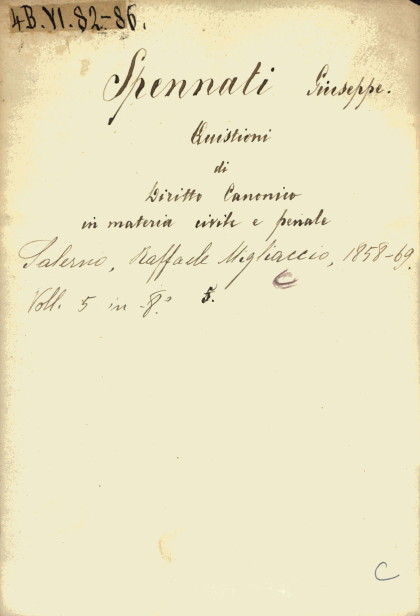 4B.VI.82-86.
Spennati Giuseppe.
Quistioni
di
Diritto Canonico
in materia civile e penale
Salerno, Raffaele Migliaccio, 1858-69.
C
Voll. 5 in -8.° 5.
C